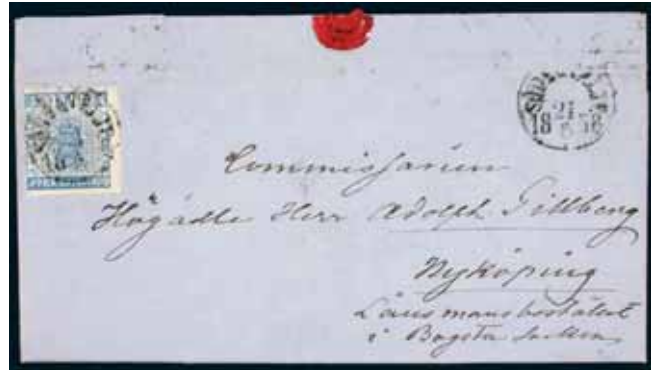 SÖDERTELJE
21
18 6 58
Commissarien
Högädle Herr Adolph Tillberg
Nyköping
Länsmansbostället
i Bogsta